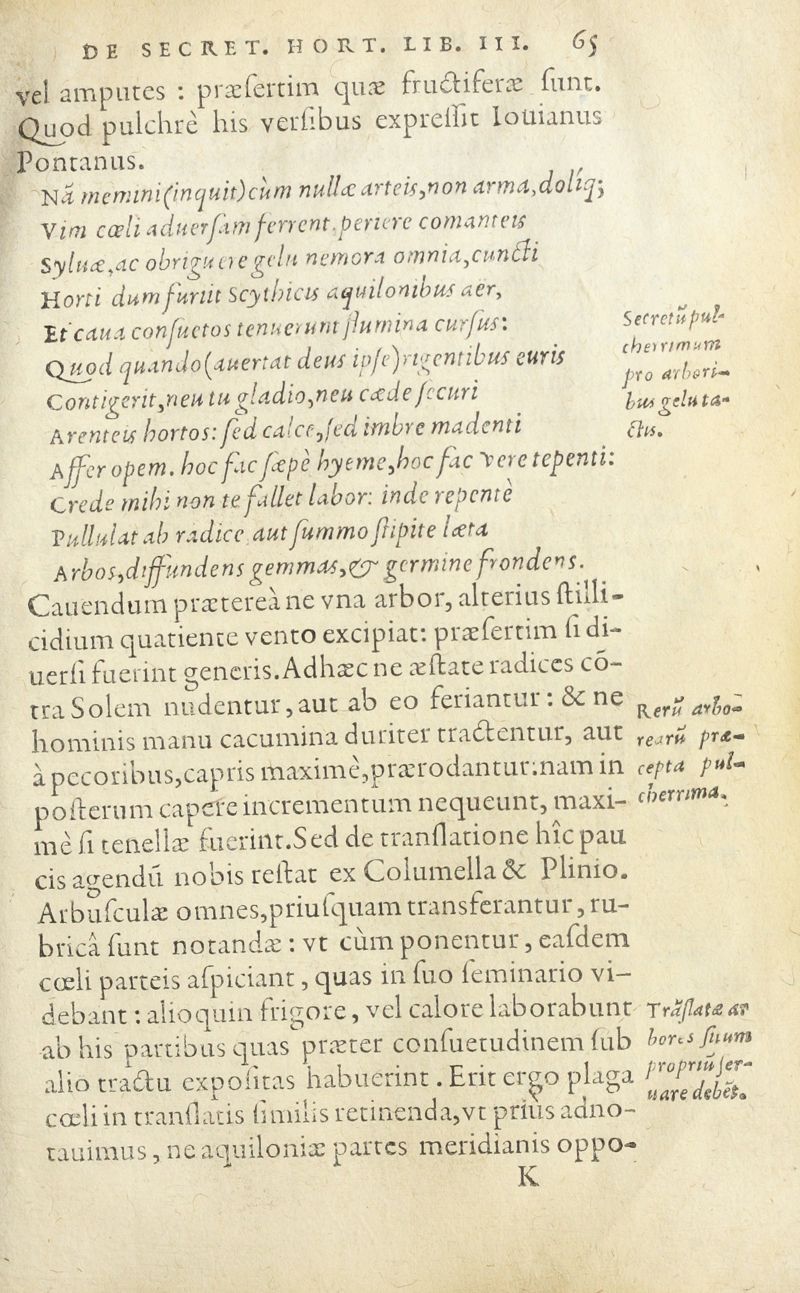 DE SECRET. HORT. LIB. III. 65
vel amputes : præſertim quæ fructiferæ ſunt.
Quod pulchrè his verſibus expreſſit Iouianus
Pontanus.
Nā memini (inquit) cùm nullæ arteis, non arma, doliq;
Vim cœli aduerſam ferrent, periere comanteis
Syluæ, ac obriguere gelu nemora omnia, cuncti
Horti dum furit Scythicis aquilonibus aer,
Et caua conſuetos tenuerunt flumina curſus:
Quod quando (auertat deus ipſe) rigentibus euris
Contigerit, neu tu gladio, neu cæde ſecuri
Arenteis hortos: ſed calce, ſed imbre madenti
Affer opem. hoc fac ſæpè hyeme, hoc fac Vere tepenti:
Crede mihi non te fallet labor: inde repentè
Pullulat ab radice, aut ſummo ſtipite læta
Arbos, diffundens gemmas, & germine frondens.
Secretū pul-
cherrimum
pro arbori-
bus gelu ta-
ctis.
Cauendum prætereà ne vna arbor, alterius ſtilli-
cidium quatiente vento excipiat: præſertim ſi di-
uerſi fuerint generis. Adhæc ne æſtate radices cō-
tra Solem nudentur, aut ab eo feriantur: & ne
hominis manu cacumina duriter tractentur, aut
à pecoribus, capris maximè, prærodantur: nam in
poſterum capere incrementum nequeunt, maxi-
mè ſi tenellæ fuerint. Sed de tranſlatione hîc pau
cis agendū nobis reſtat ex Columella & Plinio.
Rerū arbo-
rearū præ-
cepta pul-
cherrima.
Arbuſculæ omnes, priuſquam transferantur, ru-
bricâ ſunt notandæ : vt cùm ponentur, eaſdem
cœli parteis aſpiciant, quas in ſuo ſeminario vi-
debant : alioquin frigore, vel calore laborabunt
ab his partibus quas præter conſuetudinem ſub
alio tractu expoſitas habuerint. Erit ergo plaga
cœli in tranſlatis ſimilis retinenda, vt priùs adno-
tauimus, ne aquiloniæ partes meridianis oppo-
Trāſlatæ ar
bores ſitum
propriū ſer-
uare debēt.
K